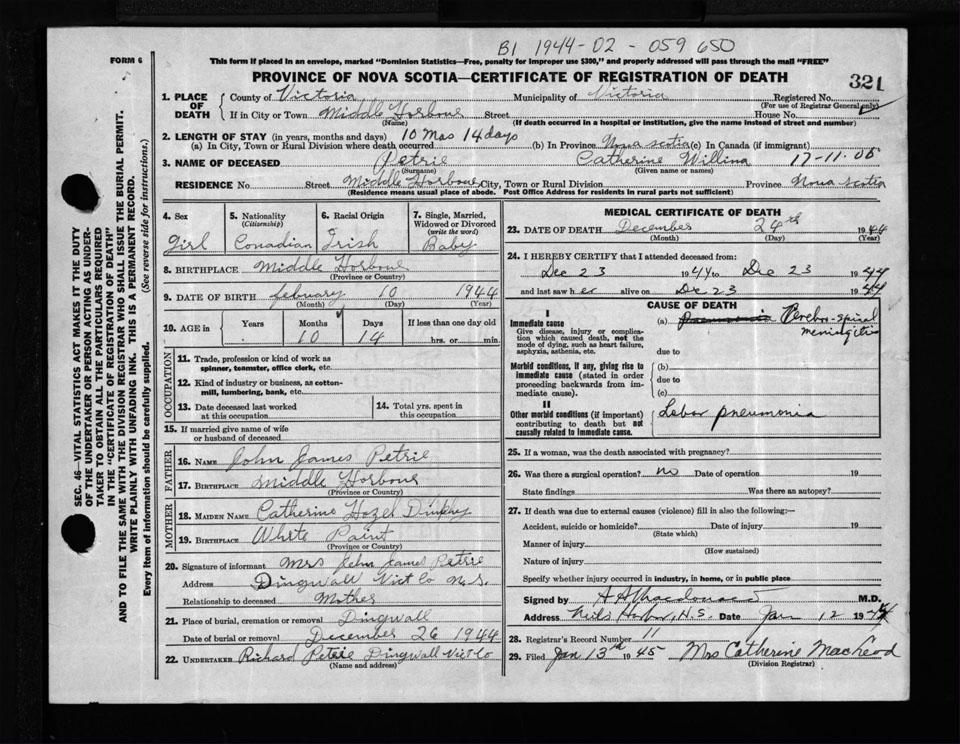 B1 1944-02-059650
FORM 6
This form if placed in an envelope, marked "Dominion Statistics—Free, penalty for improper use $300," and properly addressed will pass through the mail "FREE"
PROVINCE OF NOVA SCOTIA—CERTIFICATE OF REGISTRATION OF DEATH
321
1. PLACE OF DEATH
County of Victoria Municipality of Victoria Registered No.
(For use of Registrar General only)
If in City or Town Middle Horboue Street House No.
(Name) (If death occurred in a hospital or institution, give the name instead of street and number)
2. LENGTH OF STAY (in years, months and days) 10 Mos 14 days
(a) In City, Town or Rural Division where death occurred (b) In Province Nova Scotia (c) In Canada (if immigrant)
3. NAME OF DECEASED Petrie Catherine Willina 17-11.05
(Surname) (Given name or names)
RESIDENCE No. Street Middle Horboue City, Town or Rural Division Province Nova Scotia
(Residence means usual place of abode. Post Office Address for residents in rural parts not sufficient)
4. Sex 5. Nationality (Citizenship) 6. Racial Origin 7. Single, Married, Widowed or Divorced (write the word)
Girl Conadian Irish Baby
8. BIRTHPLACE Middle Horboue
(Province or Country)
9. DATE OF BIRTH february 10 1944
(Month) (Day) (Year)
10. AGE in Years Months Days If less than one day old
10 14 hrs. or min.
OCCUPATION
11. Trade, profession or kind of work as spinner, teamster, office clerk, etc.
12. Kind of industry or business, as cotton-mill, lumbering, bank, etc.
13. Date deceased last worked at this occupation
14. Total yrs. spent in this occupation
15. If married give name of wife or husband of deceased
FATHER
16. NAME John James Petrie
17. BIRTHPLACE Middle Horboue
(Province or Country)
MOTHER
18. MAIDEN NAME Catherine Hozel Dunphy
19. BIRTHPLACE White Point
(Province or Country)
20. Signature of informant Mrs John James Petrie
Address Dingwall Vict Co N.S.
Relationship to deceased Mother
21. Place of burial, cremation or removal Dingwall
Date of burial or removal December 26 1944
22. UNDERTAKER Richard Petrie Dingwall Vict Co
(Name and address)
MEDICAL CERTIFICATE OF DEATH
23. DATE OF DEATH December 24th 1944
(Month) (Day) (Year)
24. I HEREBY CERTIFY that I attended deceased from:
Dec 23 1944 to Dec 23 1944
and last saw her alive on Dec 23 1944
CAUSE OF DEATH
I
Immediate cause
Give disease, injury or complication which caused death, not the mode of dying, such as heart failure, asphyxia, asthenia, etc.
(a) pneumonia Cerebro-spinal meningitis
due to
Morbid conditions, if any, giving rise to immediate cause (stated in order proceeding backwards from immediate cause).
(b)
due to
(c)
II
Other morbid conditions (if important) contributing to death but not causally related to immediate cause.
Lobar pneumonia
25. If a woman, was the death associated with pregnancy?
26. Was there a surgical operation? no Date of operation 19
State findings Was there an autopsy?
27. If death was due to external causes (violence) fill in also the following:—
Accident, suicide or homicide? Date of injury 19
(State which)
Manner of injury
(How sustained)
Nature of injury
Specify whether injury occurred in industry, in home, or in public place
Signed by A A Macdonald M.D.
Address Neils Harbor, N.S. Date Jan 12 1945
28. Registrar's Record Number 11
29. Filed Jan 13th 1945 Mrs Catherine MacLeod
(Division Registrar)
SEC. 46—VITAL STATISTICS ACT MAKES IT THE DUTY
OF THE UNDERTAKER OR PERSON ACTING AS UNDER-
TAKER TO OBTAIN ALL THE PARTICULARS REQUIRED
IN THE "CERTIFICATE OF REGISTRATION OF DEATH"
AND TO FILE THE SAME WITH THE DIVISION REGISTRAR WHO SHALL ISSUE THE BURIAL PERMIT.
WRITE PLAINLY WITH UNFADING INK. THIS IS A PERMANENT RECORD.
Every item of information should be carefully supplied. (See reverse side for instructions.)